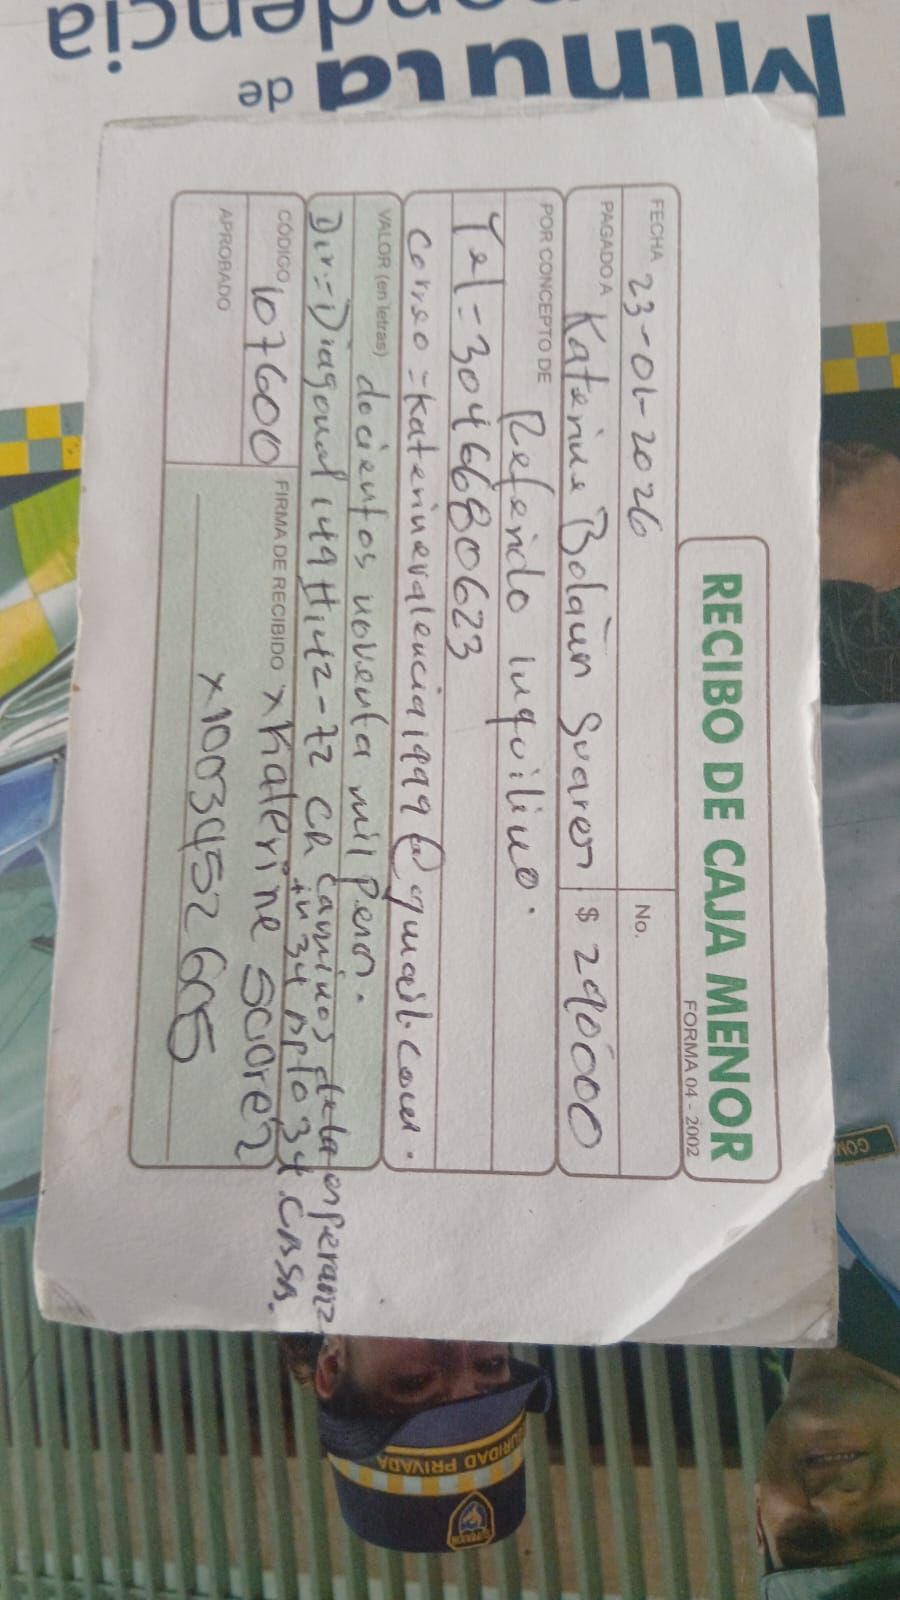 Minuta de
RECIBO DE CAJA MENOR
FORMA 04 - 2002
FECHA 23-01-2026
No.
PAGADO A Katerine Bolaün Suarez
$ 290'000
POR CONCEPTO DE Referido inquilino.
Tel = 3046680623
correo = katerinevalencia1999@gmail.com.
VALOR (en letras) docientos noventa mil Peros.
Dir = Diagonal 149 # 142-72 CR caminos de la esperanz
in 34 Apto 34 CASA.
CÓDIGO 107600
FIRMA DE RECIBIDO x Katerine Suarez
APROBADO
x1003452605
URIDAD PRIVADA